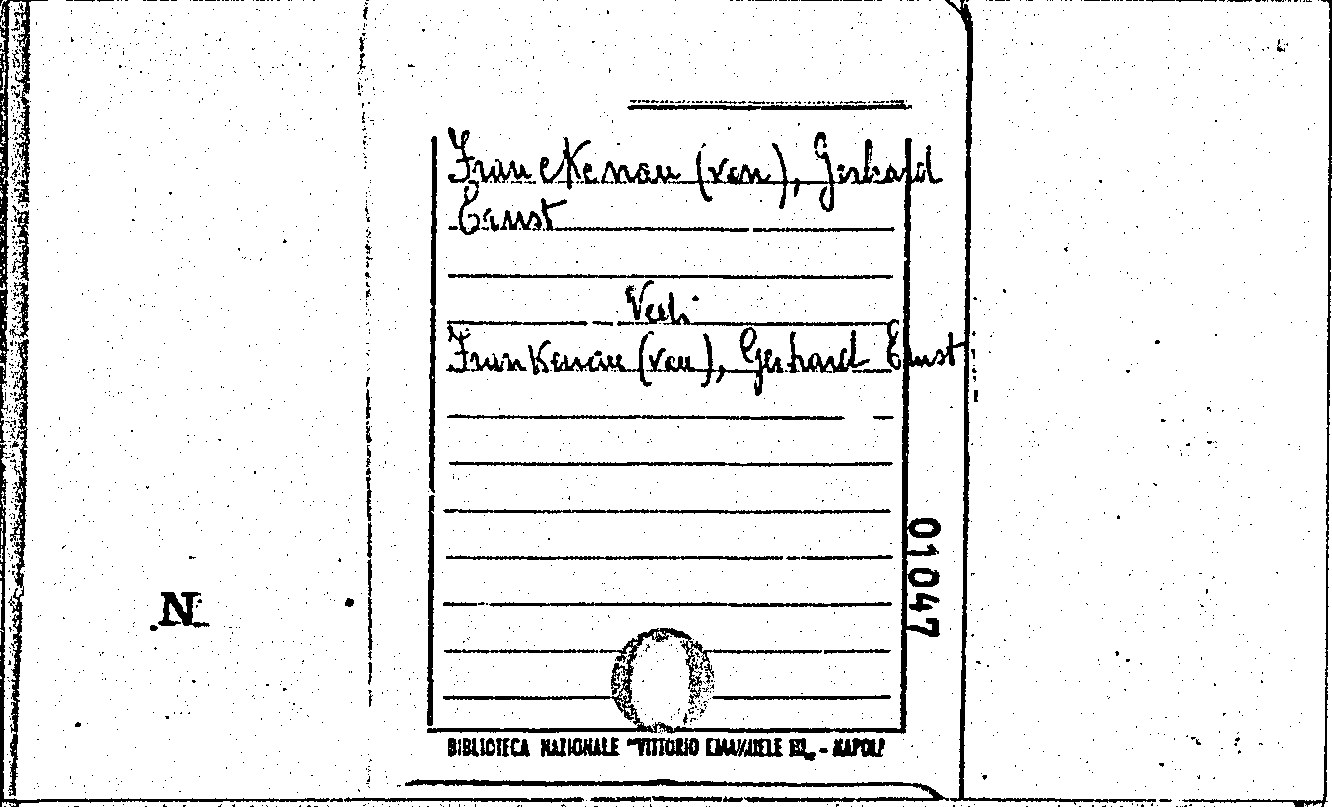 Franckenau (von), Gerhard
Ernst
Vedi
Frankenau (von), Gerhard Ernst
01047
N
BIBLIOTECA NAZIONALE "VITTORIO EMANUELE III" - NAPOLI